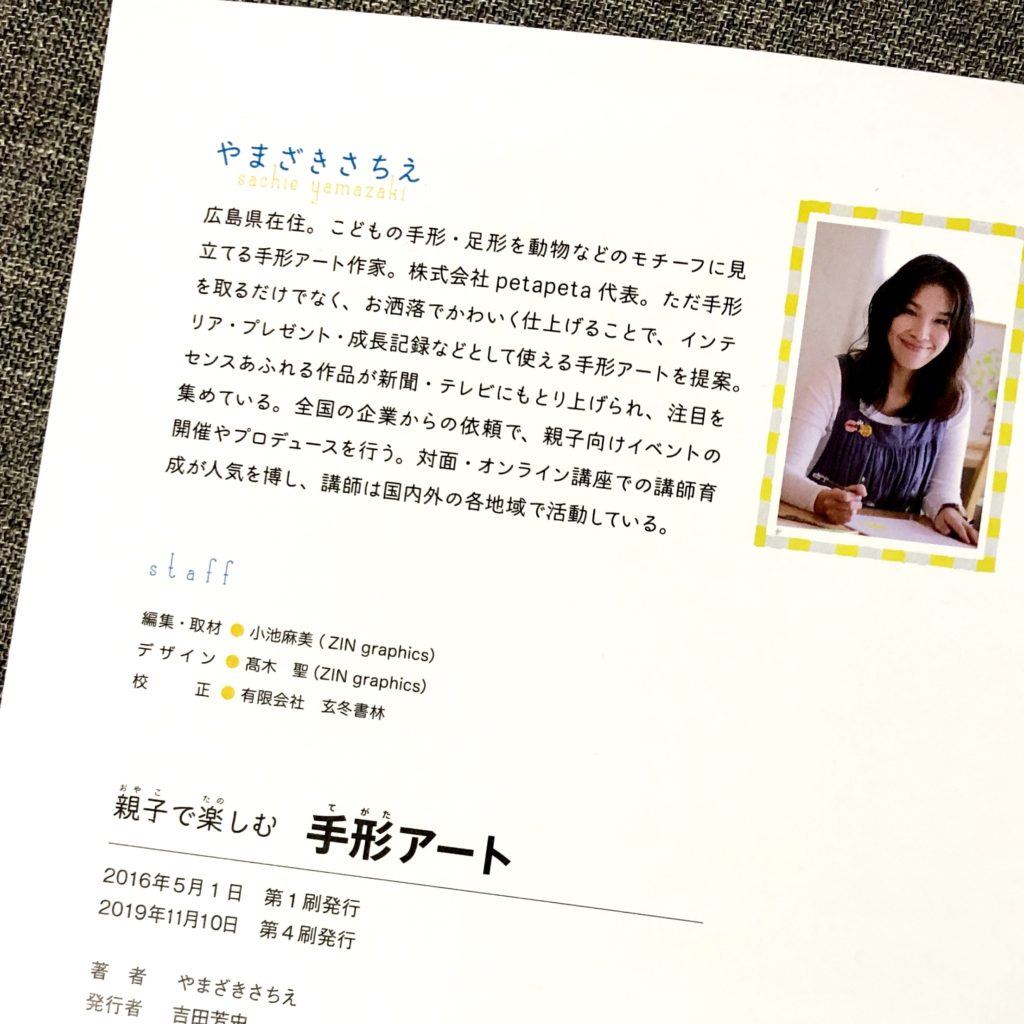 やまざきさちえ
sachie yamazaki
広島県在住。こどもの手形・足形を動物などのモチーフに見
立てる手形アート作家。株式会社 petapeta 代表。ただ手形
を取るだけでなく、お洒落でかわいく仕上げることで、インテ
リア・プレゼント・成長記録などとして使える手形アートを提案。
センスあふれる作品が新聞・テレビにもとり上げられ、注目を
集めている。全国の企業からの依頼で、親子向けイベントの
開催やプロデュースを行う。対面・オンライン講座での講師育
成が人気を博し、講師は国内外の各地域で活動している。
staff
編集・取材 ● 小池麻美 (ZIN graphics)
デザイン ● 髙木 聖 (ZIN graphics)
校 正 ● 有限会社 玄冬書林
おやこ たの てがた
親子で楽しむ 手形アート
2016年5月1日 第1刷発行
2019年11月10日 第4刷発行
著 者 やまざきさちえ
発行者 吉田芳